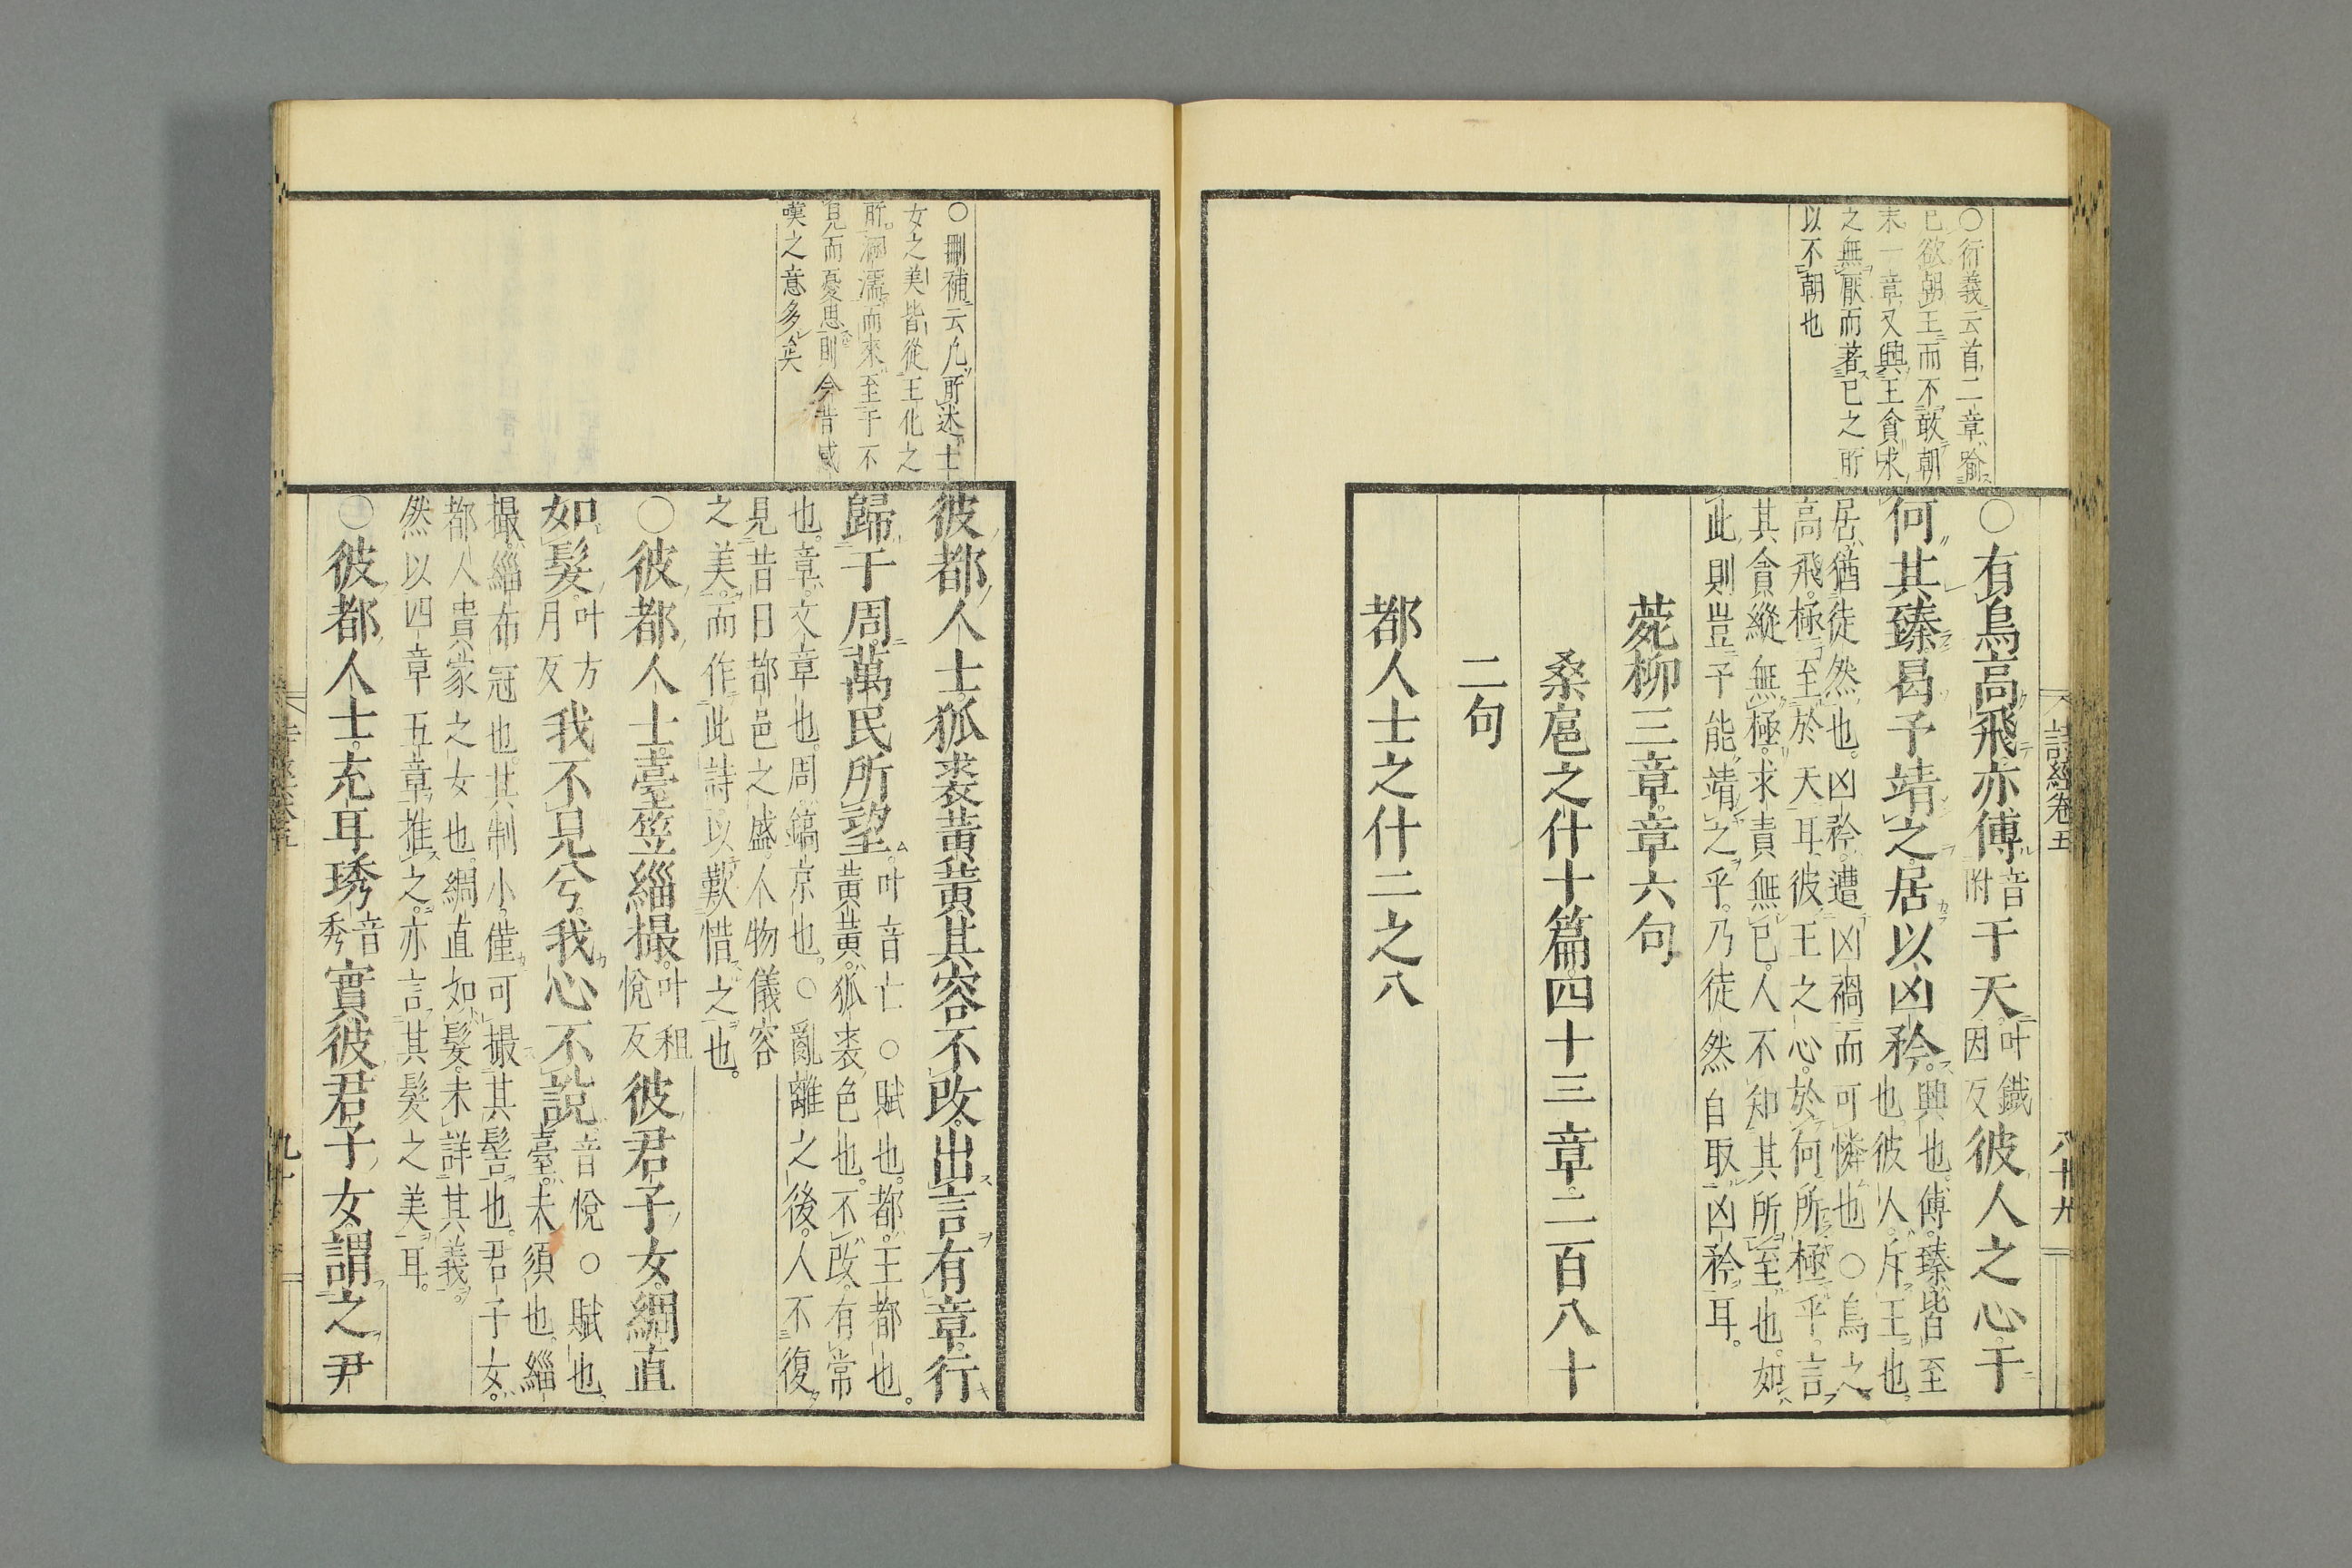 ○衍義云首二章喻
已欲朝王而不敢朝
末一章又興王貪求
之無厭而著已之所
以不朝也
○有鳥高飛亦傅音附于天叶鐵因反彼人之心于
何其臻曷予靖之居以凶矜興也傅臻皆至也彼人斥王也
居猶徒然也凶矜遭凶禍而可憐也○鳥之
高飛極至於天耳彼王之心於何所極乎言
其貪縱無極求責無已人不知其所至也如
此則豈予能靖之乎乃徒然自取凶矜耳
菀柳三章章六句
桑扈之什十篇四十三章二百八十
二句
都人士之什二之八
詩經卷五
八十九
○刪補云凡所述士
女之美皆從王化之
所漸濡而來至于不
見而憂思則今昔感
嘆之意多矣
彼都人士狐裘黃黃其容不改出言有章行
歸于周萬民所望叶音亡○賦也都王都也黃黃狐裘色也不改有常
也章文章也周鎬京也○亂離之後人不復
見昔日都邑之盛人物儀容
之美而作此詩以歎惜之也
○彼都人士臺笠緇撮叶租悅反彼君子女綢直
如髮叶方月反我不見兮我心不說音悅○賦也臺夫須也緇
撮緇布冠也其制小僅可撮其髻也君子女
都人貴家之女也綢直如髮未詳其義
然以四章五章推之亦言其髮之美耳
○彼都人士充耳琇音秀實彼君子女謂之尹
九十